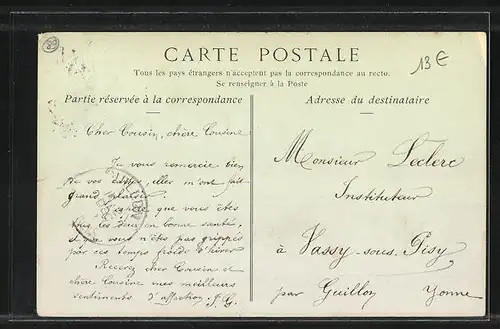 89
13€
CARTE POSTALE
Tous les pays étrangers n'acceptent pas la correspondance au recto.
Se renseigner à la Poste
Partie réservée à la correspondance
Cher Cousin, chère Cousine
Je vous remercie bien
de vos cartes, elles m'ont fait
grand plaisir.
J'espère que vous êtes
tous les deux en bonne santé,
et que vous n'êtes pas grippés
par ces temps froids d'hiver
Recevez cher Cousin et
chère Cousine mes meilleurs
sentiments d'affection J. G.
Adresse du destinataire
Monsieur Leclerc
Instituteur
à Vassy-sous-Pisy
par Guillon Yonne